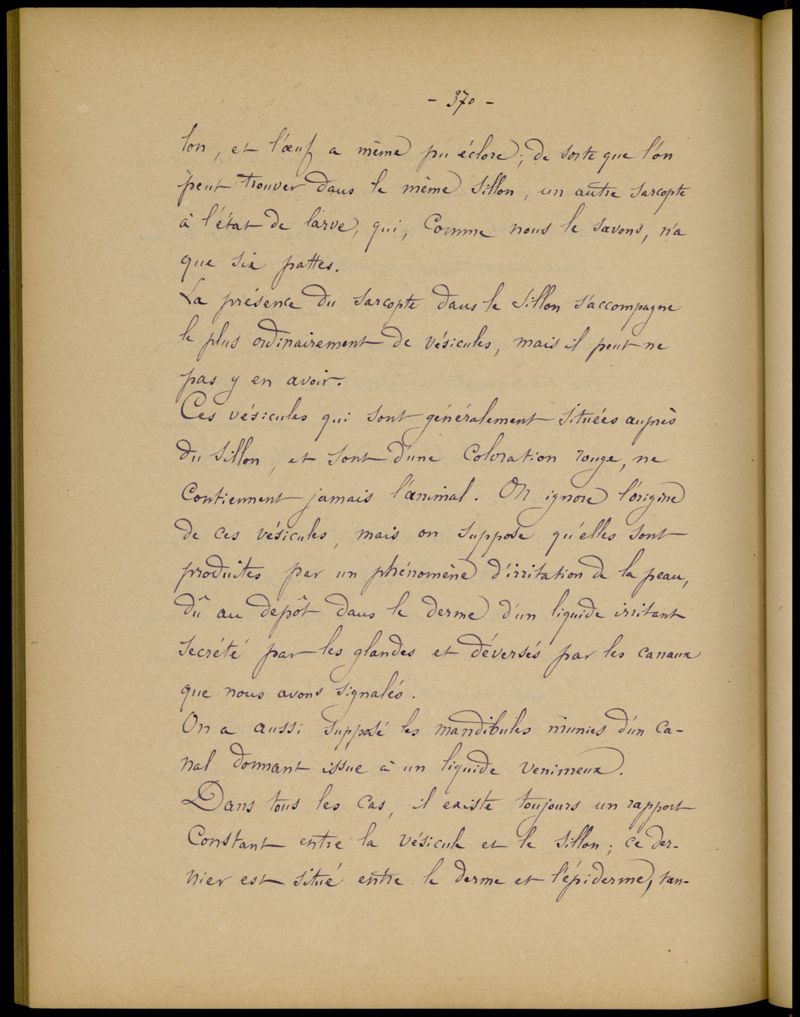 - 370 -
lon, et l'œuf a même pu éclore; de sorte que l'on
peut trouver dans le même sillon, un autre sarcopte
à l'état de larve, qui, comme nous le savons, n'a
que six pattes.
La présence du sarcopte dans le sillon s'accompagne
le plus ordinairement de vésicules, mais il peut ne
pas y en avoir.
Ces vésicules qui sont généralement situées auprès
du sillon, et sont d'une coloration rouge, ne
contiennent jamais l'animal. On ignore l'origine
de ces vésicules, mais on suppose qu'elles sont
produites par un phénomène d'irritation de la peau,
dû au depôt dans le derme d'un liquide irritant
secrété par les glandes et déversés par les canaux
que nous avons signalés.
On a aussi supposé les mandibules munies d'un ca-
nal donnant issue à un liquide venimeux.
Dans tous les cas, il existe toujours un rapport
constant entre la vésicule et le sillon; ce der-
nier est situé entre le derme et l'épiderme, tan-